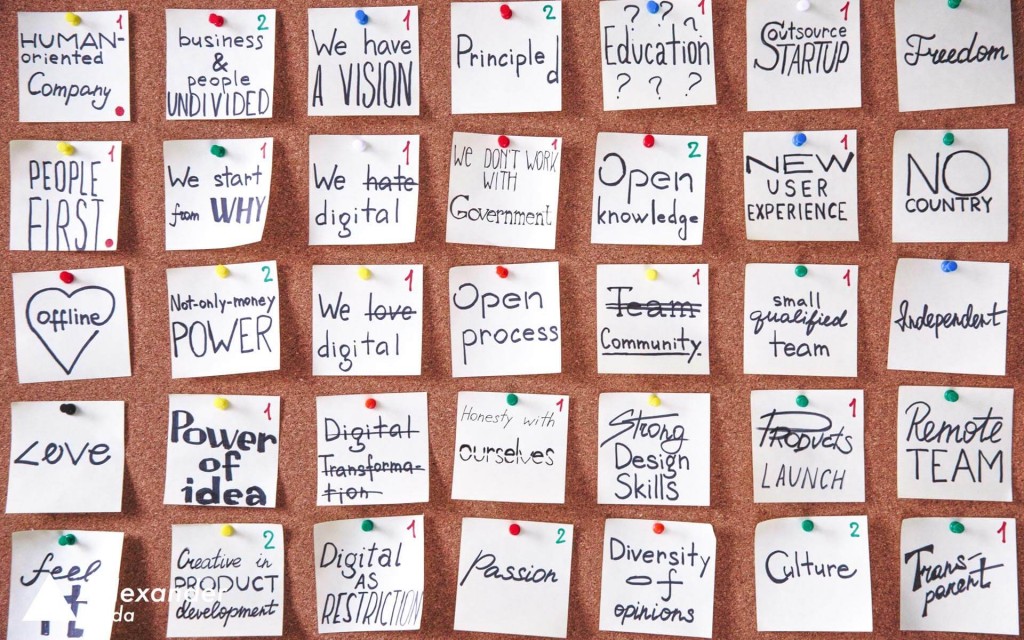 HUMAN-
oriented
Company
2
business
&
people
UNDIVIDED
1
We have
A VISION
2
Principled
? ? ?
Education
? ? ?
1
Outsource
STARTUP
Freedom
1
PEOPLE
FIRST
1
We start
from WHY
1
We hate
digital
1
We DON'T WORK
WITH
Government
2
Open
knowledge
1
NEW
USER
EXPERIENCE
NO
COUNTRY
offline
2
Not-only-money
POWER
1
We love
digital
Open
process
1
Team
Community
1
small
qualified
team
Independent
Love
1
Power
of
idea
Digital
Transforma-
tion
1
Honesty with
ourselves
Strong
Design
Skills
1
Products
LAUNCH
Remote
TEAM
feel
IT
2
Creative in
PRODUCT
development
1
Digital
AS
RESTRICTION
2
Passion
Diversity
of
opinions
2
Culture
1
Trans-
parent